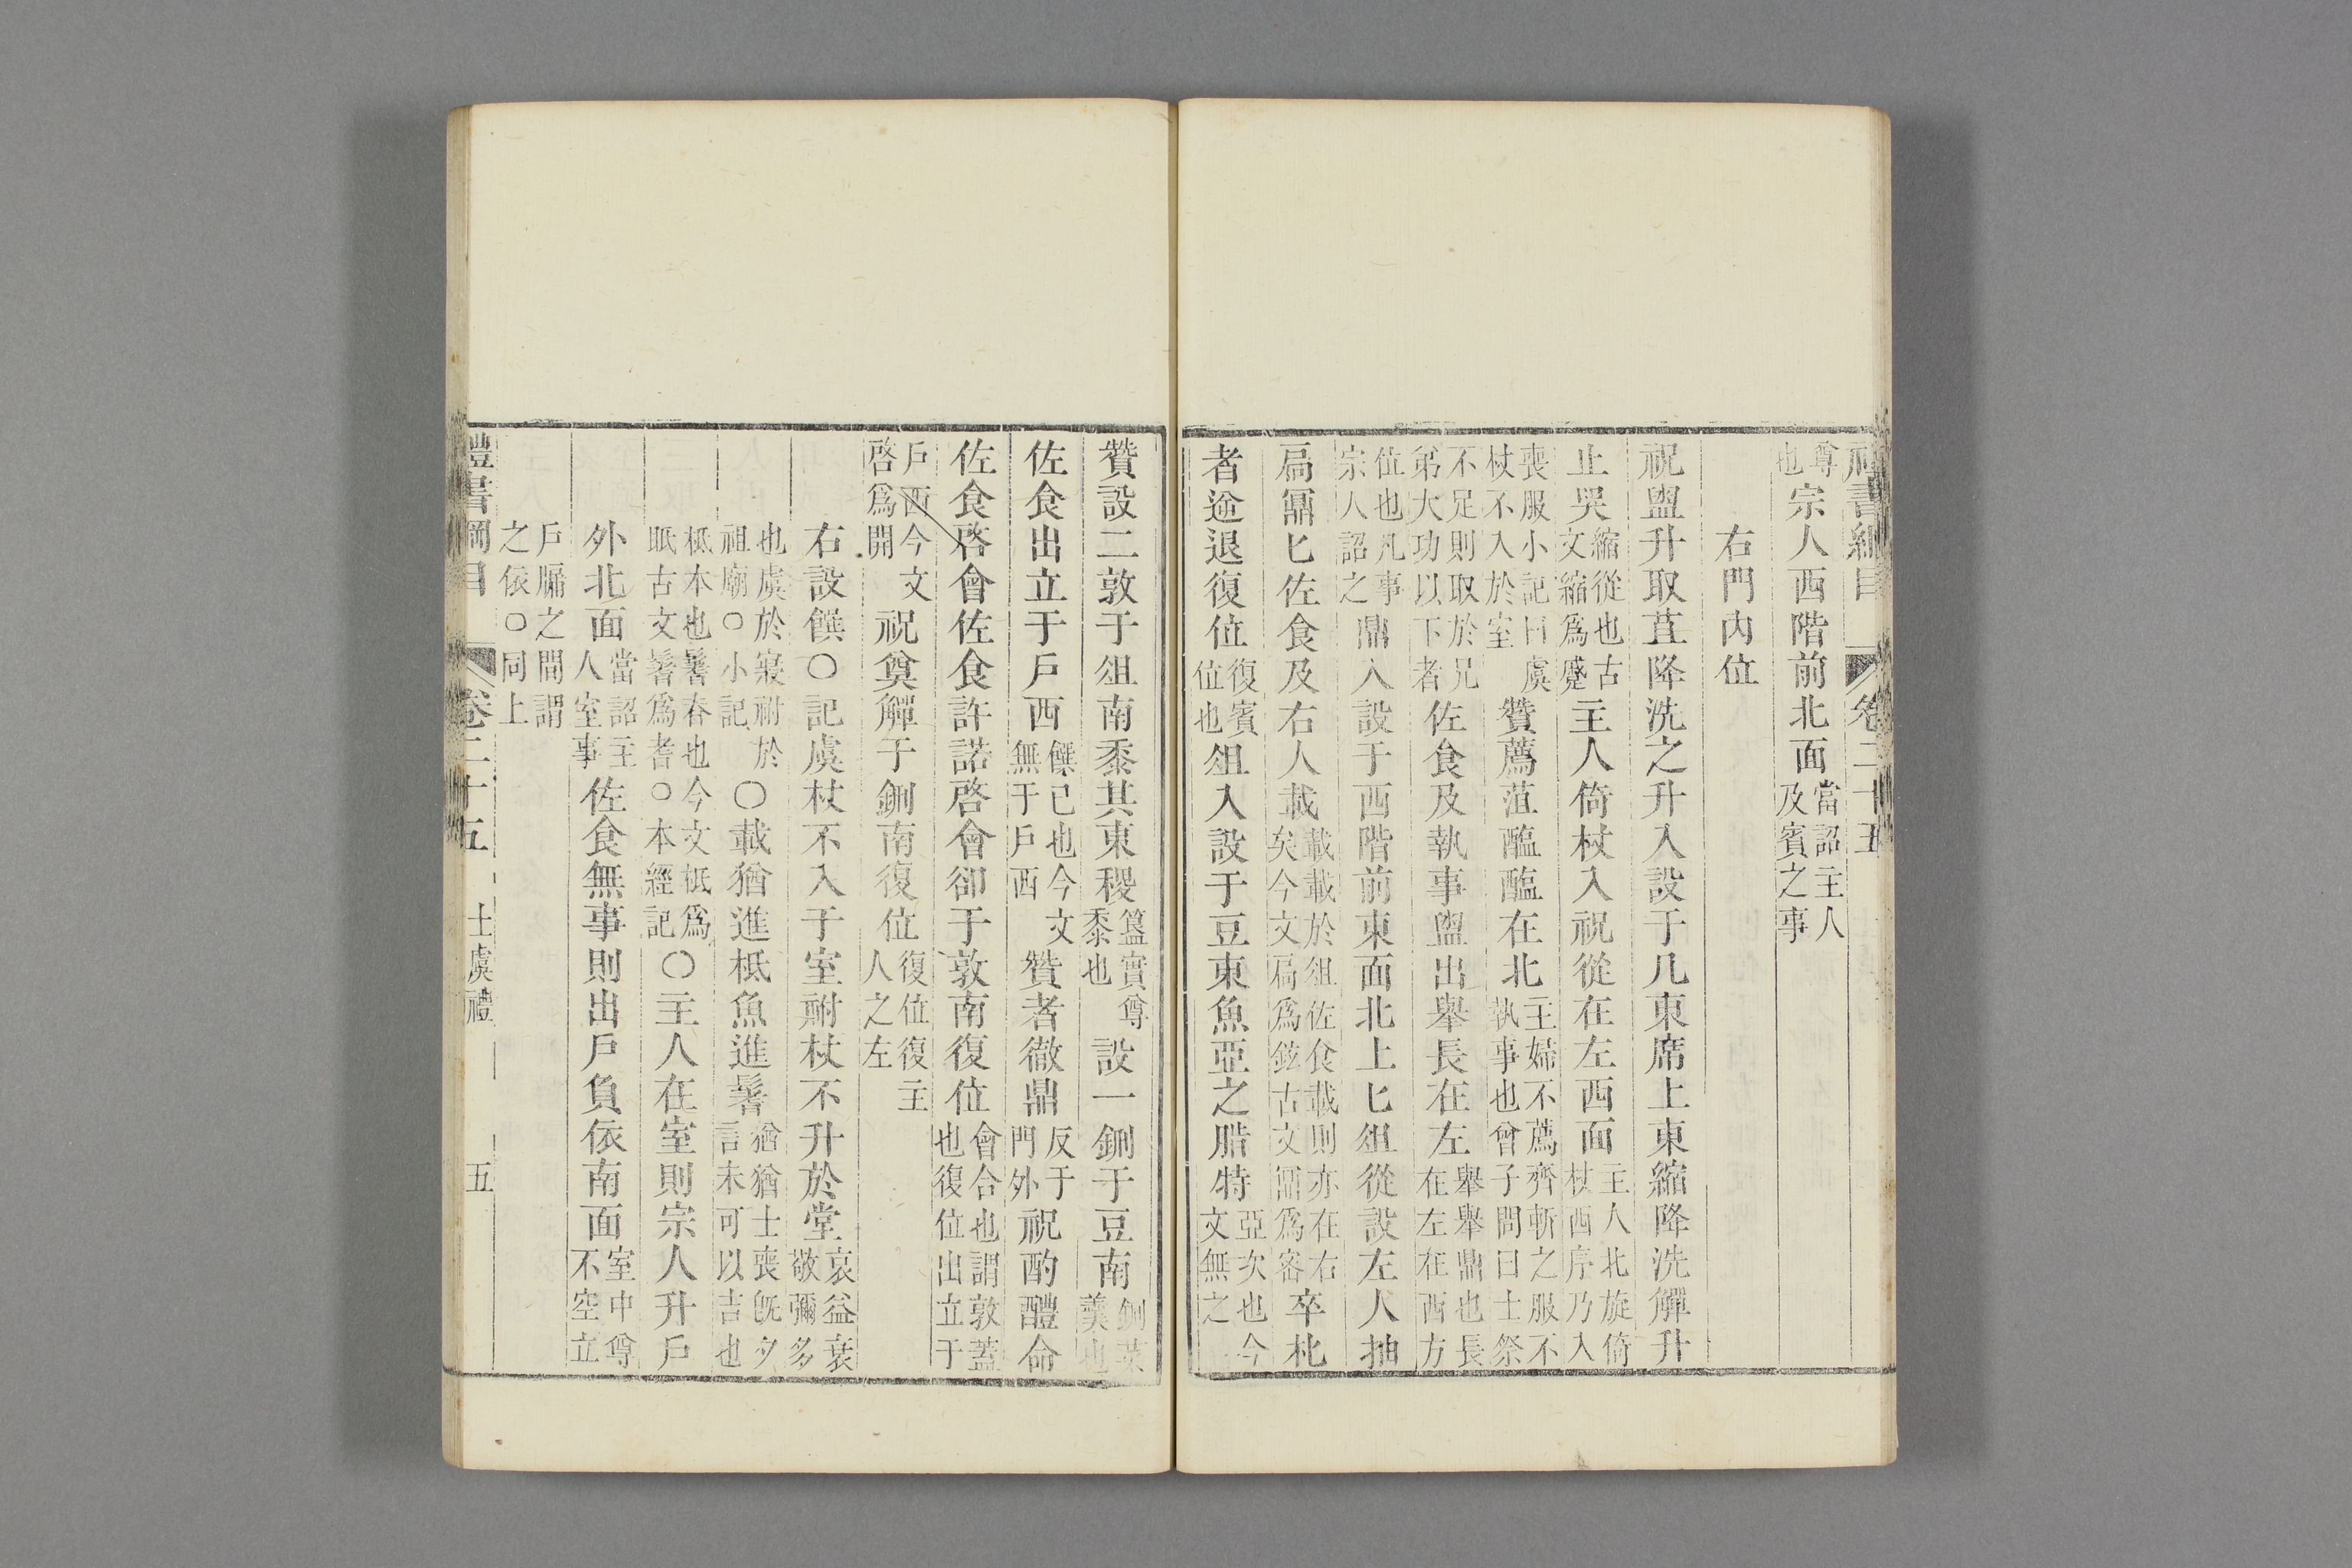 禮書綱目 卷二十五
尊也宗人西階前北面當詔主人及賓之事
右門內位
祝盥升取苴降洗之升入設于几東席上東縮降洗觶升
止哭縮從也古文縮爲蹙主人倚杖入祝從在左西面主人北旋倚杖西序乃入
喪服小記曰虞杖不入於室贊薦菹醢醢在北主婦不薦齊斬之服不執事也曾子問曰士祭
不足則取於兄弟大功以下者佐食及執事盥出舉長在左舉舉鼎也長在左在西方
位也凡事宗人詔之鼎入設于西階前東面北上匕俎從設左人抽
扃鼏匕佐食及右人載載載於俎佐食載則亦在右矣今文扃爲鉉古文鼏爲密卒朼
者逆退復位復賓位也俎入設于豆東魚亞之腊特亞次也今文無之
贊設二敦于俎南黍其東稷簋實尊黍也設一鉶于豆南鉶菜羹也
佐食出立于戶西饌已也今文無于戶西贊者徹鼎反于門外祝酌醴命
佐食啓會佐食許諾啓會卻于敦南復位會合也謂敦蓋也復位出立于
戶西今文啓爲開祝奠觶于鉶南復位復位復主人之左
右設饌○記虞杖不入于室祔杖不升於堂哀益衰敬彌多
也虞於寢祔於祖廟○小記○載猶進柢魚進鬐猶猶士喪旣夕言未可以吉也
柢本也鬐脊也今文柢爲胝古文鬐爲耆○本經記○主人在室則宗人升戶
外北面當詔主人室事佐食無事則出戶負依南面室中尊不空立
戶牖之間謂之依○同上
禮書綱目 卷二十五 士虞禮 五